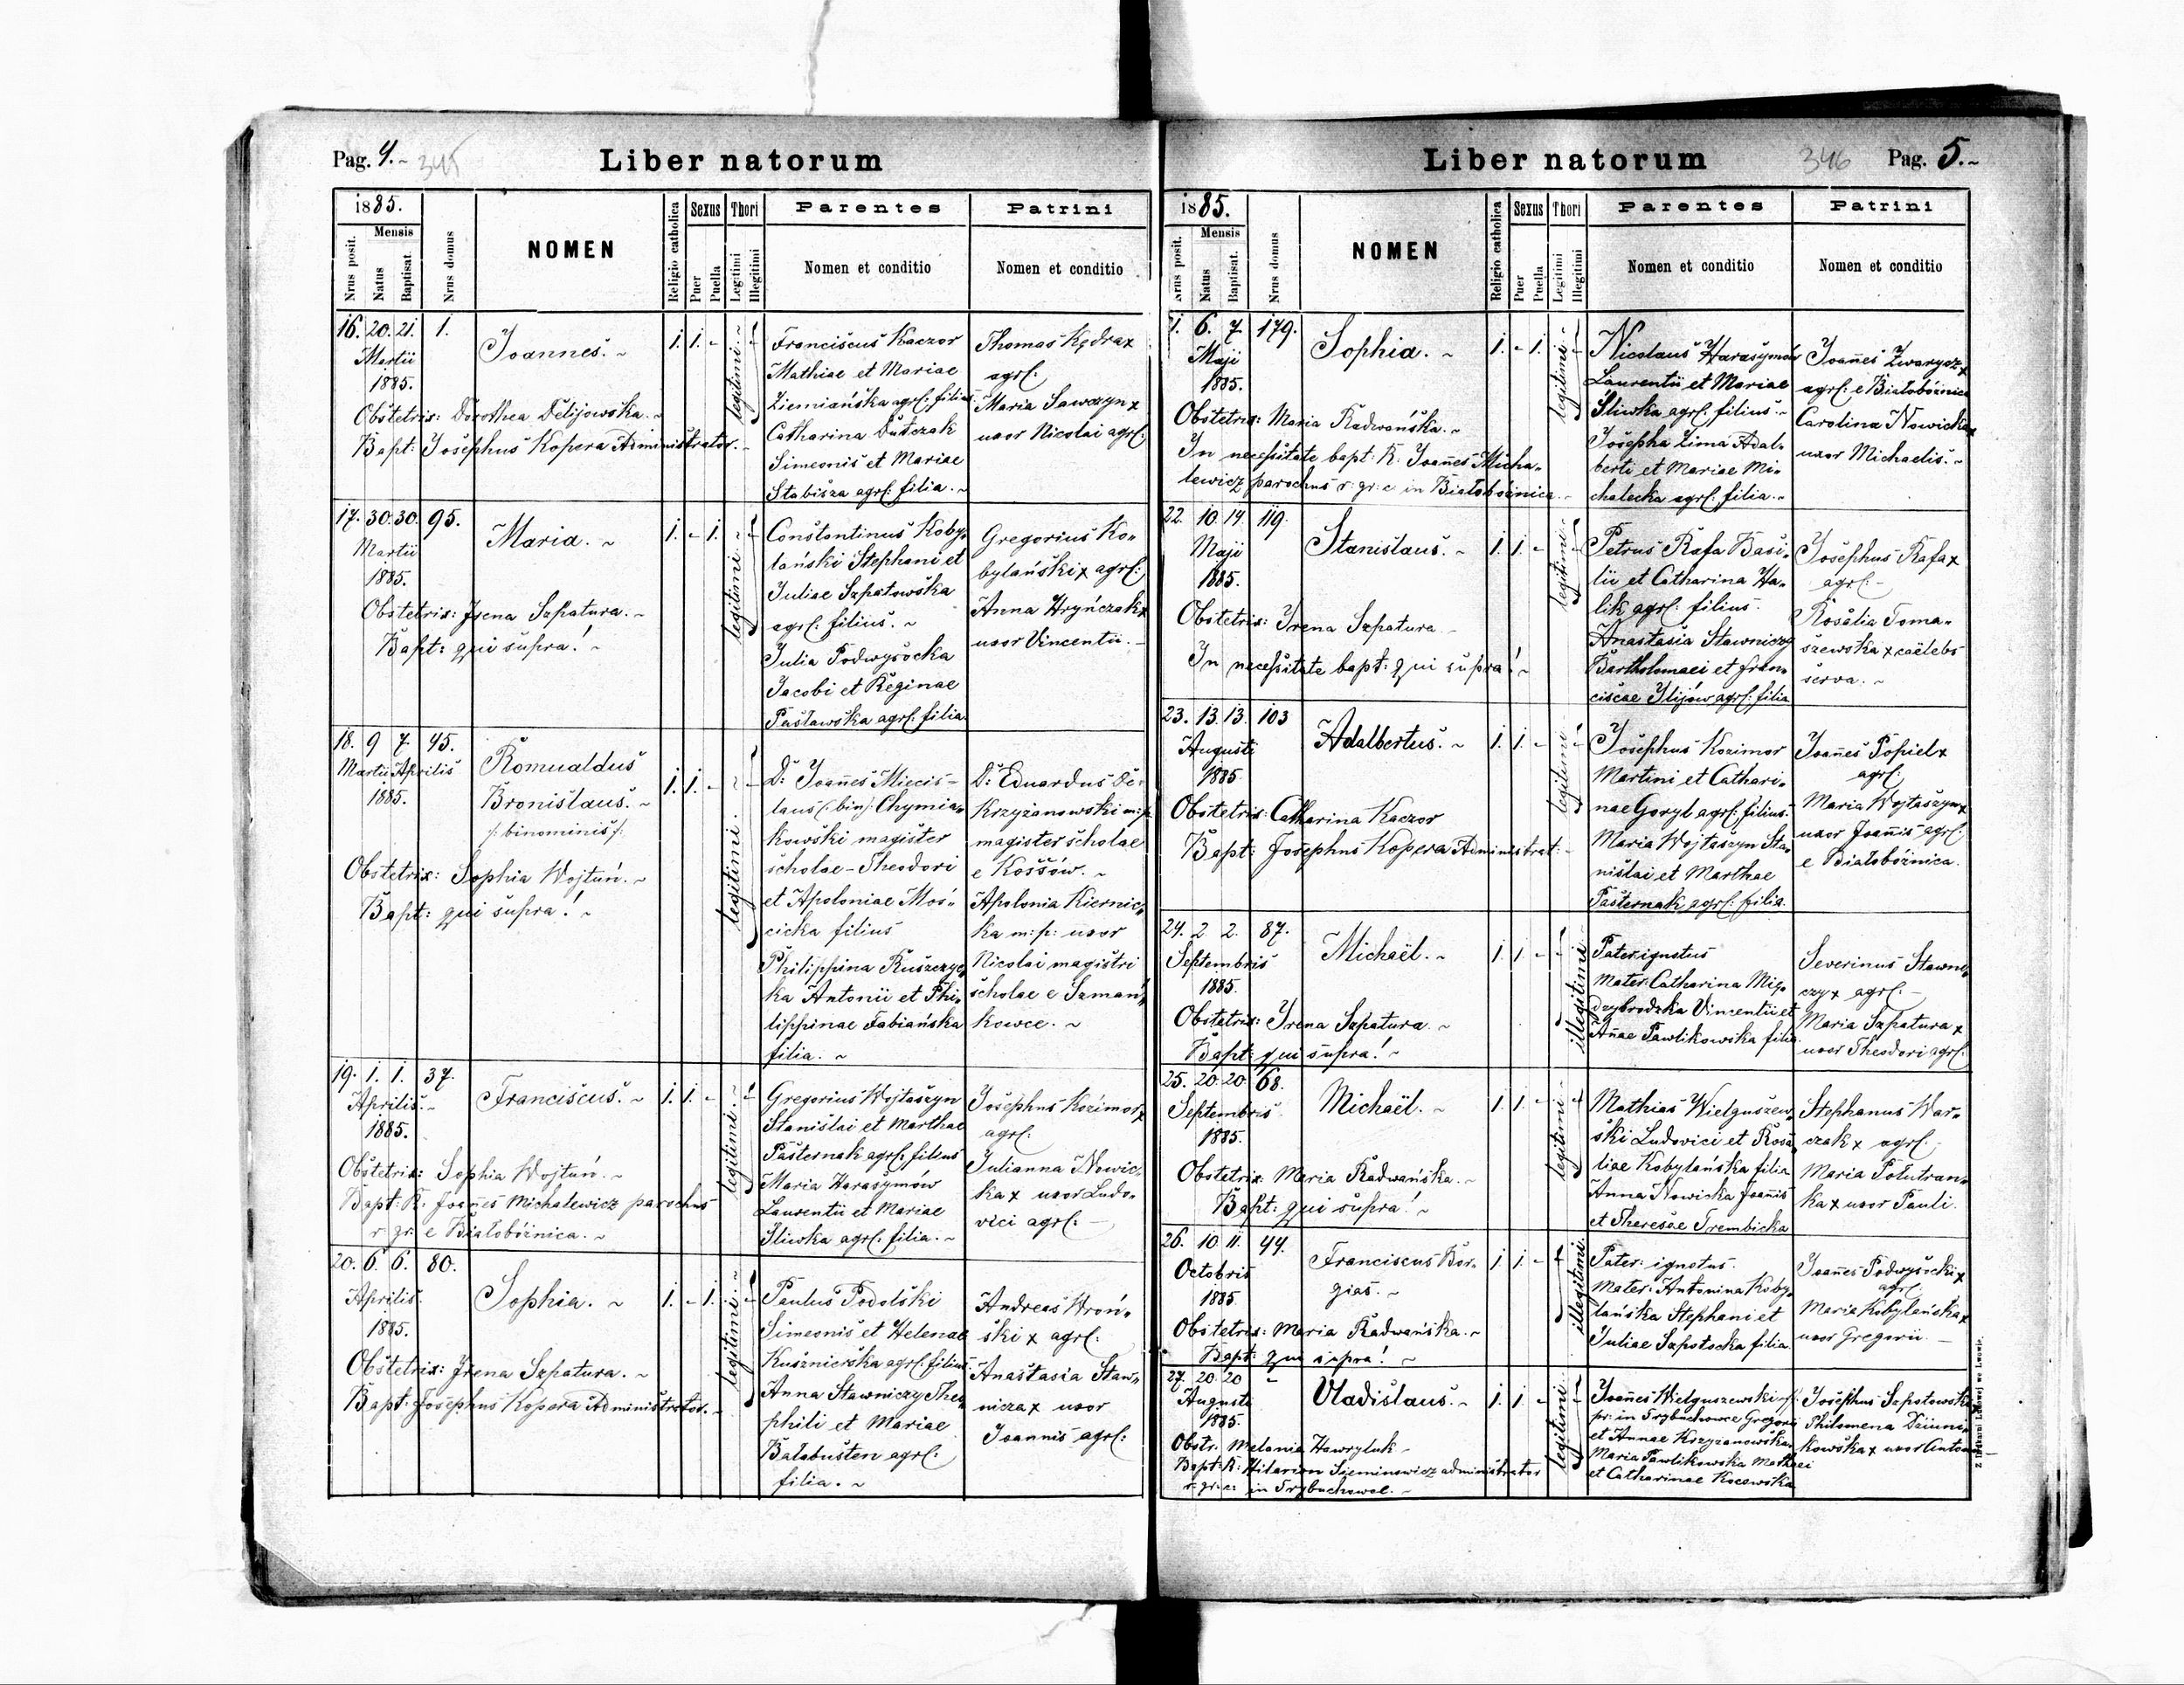 Pag. 4. ~ 345
Liber natorum
1885.
Mensis
Nrus posit.
Natus
Baptisat.
Nrus domus
NOMEN
Religio catholica
Sexus
Puer
Puella
Thori
Legitimi
Illegitimi
Parentes
Nomen et conditio
Patrini
Nomen et conditio
16. 20. 21. 1.
Martii
1885.
Joannes. ~
1. 1. -
legitimi. ~
Obstetrix: Dorothea Delijowska. ~
Bapt: Josephus Kopera Administrator. ~
Franciscus Kaczor
Mathiae et Mariae
Ziemiańska agrl: filius.
Catharina Dutczak
Simeonis et Mariae
Stabisza agrl: filia. ~
Thomas Kędra x
agrl:
Maria Sawczyn x
uxor Nicolai agrl:
17. 30. 30. 95.
Martii
1885.
Maria. ~
1. - 1.
legitimi. ~
Obstetrix: Irena Szpatura. ~
Bapt: qui supra! ~
Constantinus Koby„
lański Stephani et
Juliae Szpatowska
agrl: filius. ~
Julia Podwysocka
Jacobi et Reginae
Pasławska agrl: filia.
Gregorius Ko„
bylański x agrl:
Anna Hryńczak x
uxor Vincentii. -
18. 9 7. 45.
Martii Aprilis
1885.
Romualdus
Bronislaus. ~
/: binominis /:
1. 1. -
legitimi. ~
Obstetrix: Sophia Wojtuń. ~
Bapt: qui supra! ~
D: Joannes Miecis-
laus (bin): Chymia„
kowski magister
scholae - Theodori
et Apoloniae Mos„
cicka filius
Philippina Ruszczyc„
ka Antonii et Phi„
lippinae Fabiańska
filia. ~
D: Eduardus De„
Krzyżanowski m: p.
magister scholae
e Kossów. ~
Apolonia Kiernic„
ka m: p: uxor
Nicolai magistri
scholae e Szmań„
kowce. ~
19. 1. 1. 37.
Aprilis. ~
1885.
Franciscus. ~
1. 1. -
legitimi. ~
Obstetrix: Sophia Wojtuń. ~
Bapt: R. Joannes Michalewicz parochus
r. gr: e Białobóżnica. ~
Gregorius Wojtaszyn
Stanislai et Marthae
Pasternak agrl: filius
Maria Harasymów
Laurentii et Mariae
Sliwka agrl: filia. ~
Josephus Kozimor x
agrl:
Julianna Nowic„
ka x uxor Ludo„
vici agrl: -
20. 6. 6. 80.
Aprilis.
1885.
Sophia. ~
1. - 1.
legitimi. ~
Obstetrix: Irena Szpatura. ~
Bapt: Josephus Kopera Administrator. ~
Paulus Podolski
Simeonis et Helenae
Kusznierska agrl: filius.
Anna Stawniczy Theo„
phili et Mariae
Bałabusten agrl:
filia. ~
Andreas Wroń„
ski x agrl:
Anastasia Staw„
nicza x uxor
Joannis agrl:
Liber natorum
346 Pag. 5. ~
1885.
Mensis
Nrus posit.
Natus
Baptisat.
Nrus domus
NOMEN
Religio catholica
Sexus
Puer
Puella
Thori
Legitimi
Illegitimi
Parentes
Nomen et conditio
Patrini
Nomen et conditio
1. 6. 7. 179.
Maji
1885.
Sophia. ~
1. - 1.
legitimi. ~
Obstetrix: Maria Radwańska. ~
In necessitate bapt: R. Joannes Micha„
lewicz parochus r: gr: c in Białobóżnica. -
Nicolaus Harasymów
Laurentii et Mariae
Sliwka agrl: filius. ~
Josepha Zima Adal„
berti et Mariae Mi„
chalecka agrl: filia. ~
Joannes Zwarycz x
agrl: e Białobóżnica
Carolina Nowicka x
uxor Michaelis. ~
22. 10. 14. 119.
Maji
1885.
Stanislaus. ~
1. 1. -
legitimi. ~
Obstetrix: Irena Szpatura.
In necessitate bapt: qui supra! ~
Petrus Rafa Basi„
lii et Catharina Ha„
lik agrl: filius.
Anastasia Stawniczy
Bartholomaei et Fran„
ciscae Ilijów agrl: filia
Josephus Rafa x
agrl: -
Rosalia Toma„
szewska x caelebs
serva. ~
23. 13. 13. 103
Augusti
1885
Adalbertus. ~
1. 1. -
legitimi. ~
Obstetrix: Catharina Kaczor
Bapt: Josephus Kopera Administrat: -
Josephus Kozimor
Martini et Cathari„
nae Goryl agrl: filius.
Maria Wojtaszyn Sta„
nislai et Marthae
Pasternak agrl: filia.
Joannes Popiel x
agrl:
Maria Wojtaszyn x
uxor Joannis agrl:
e Białobóżnica.
24. 2 2. 87.
Septembris
1885.
Michaël. ~
1. 1. -
illegitimi.
Obstetrix: Irena Szpatura. ~
Bapt: qui supra! ~
Pater ignotus
Mater: Catharina Mię„
dzybrodzka Vincentii et
Annae Pawlikowska filia
Severinus Stawni„
czy x agrl: -
Maria Szpatura x
uxor Theodori agrl:
25. 20. 20. 68.
Septembris.
1885.
Michaël. ~
1. 1. -
legitimi. ~
Obstetrix: Maria Radwańska. ~
Bapt: qui supra! ~
Mathias Wielguszew„
ski Ludovici et Rosa„
liae Kobylańska filia
Anna Nowicka Joannis
et Theresae Trembicka
Stephanus War„
czak x agrl: -
Maria Polutran„
ka x uxor Pauli.
26. 10. 11. 44.
Octobris
1885.
Franciscus Bor„
gias. ~
1. 1. -
illegitimi.
Obstetrix: Maria Radwańska. ~
Bapt: qui supra! ~
Pater: ignotus.
Mater: Antonina Koby„
lańska Stephani et
Juliae Szpotocka filia.
Joannes Podwysocki x
agrl:
Maria Kobylańska x
uxor Gregorii. -
27. 20. 20 -
Augusti
1885.
Vladislaus. ~
1. 1. -
legitimi. ~
Obstr: Melania Hawryluk -
Bapt: R: Hilarion Sieminowicz administrator
r: gr: c: in Trybuchowce. ~
Joannes Wielguszewski
pr: in Trybuchowce Gregorii
et Annae Krzyżanowska.
Maria Pawlikowska Mathaei
et Catharinae Kocowska
Josephus Szpatowski x
Philomena Dziuni„
kowska x uxor Antonii
Z Drukarni Ludowej we Lwowie.